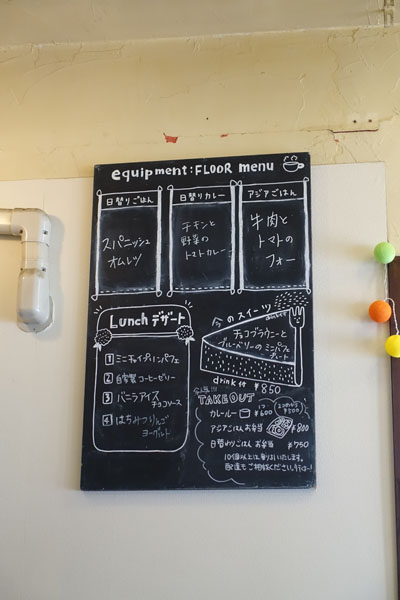 equipment:FLOOR menu
日替りごはん
スパニッシュ
オムレツ
日替りカレー
チキンと
野菜の
トマトカレー
アジアごはん
牛肉と
トマトの
フォー
Lunch デザート
1 ミニチャイプリンパフェ
2 自家製コーヒーゼリー
3 バニラアイス
チョコソース
4 はちみつりんご
ヨーグルト
今のスイーツ
チョコブラウニーと
ブルーベリーのミニパフェ
プレート
drink付 ¥850
TAKEOUT
カレールー 1つ ¥600
2つなら ¥500
アジアごはんお弁当 ¥800
日替わりごはんお弁当 ¥750
10個以上は割引いたします。
配達もご相談ください。